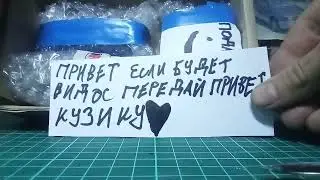 ПРИВЕТ ЕСЛИ БУДЕТ
ВИДОС ПЕРЕДАЙ ПРИВЕТ
КУЗИКУ🖤